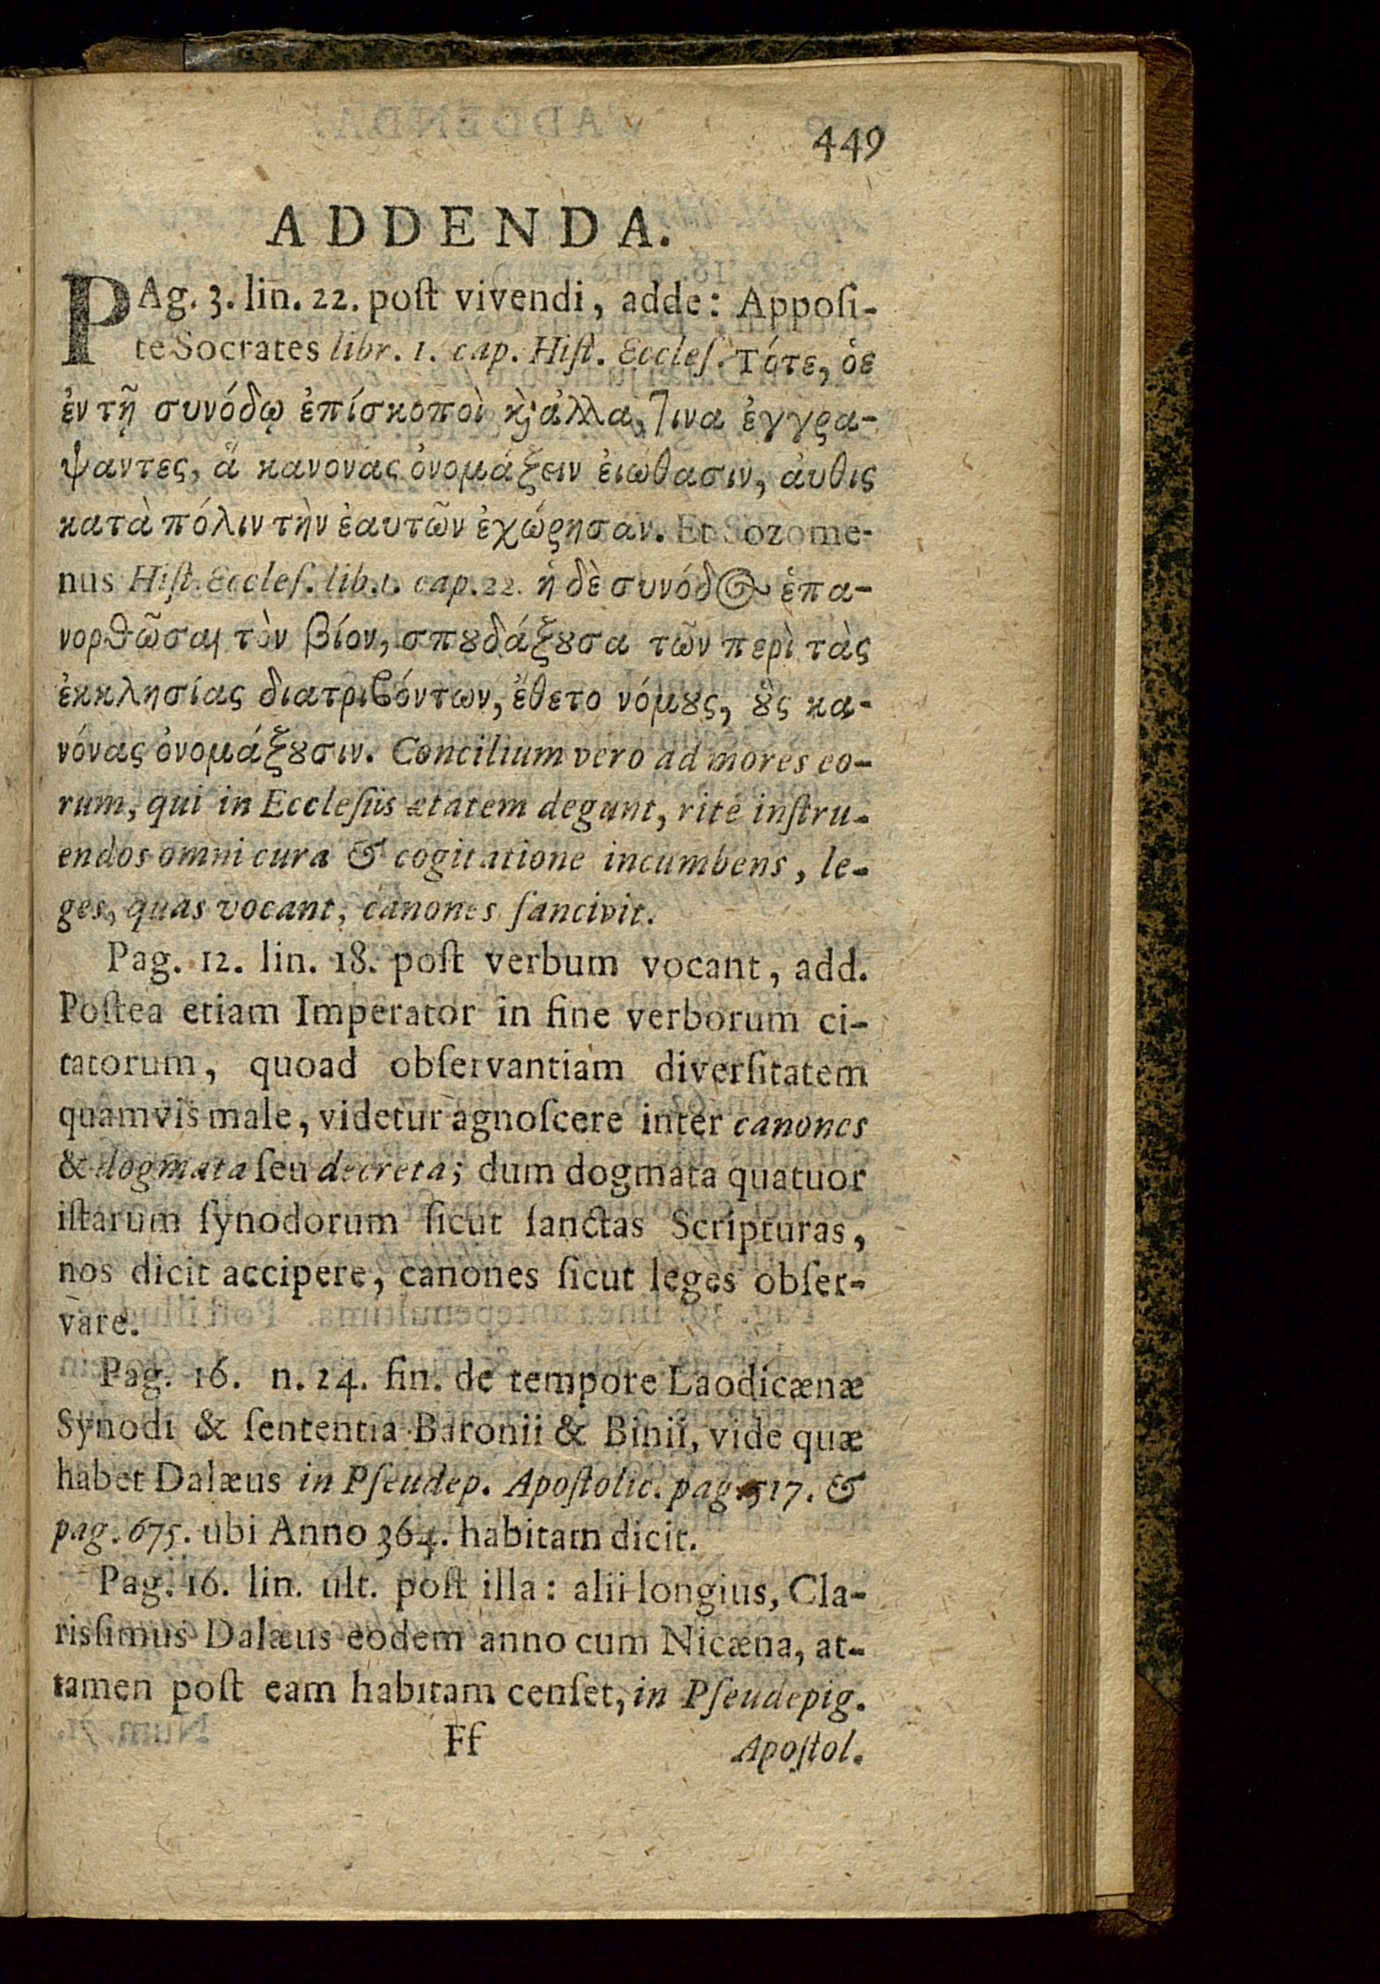 449
ADDENDA.
PAg. 3. lin. 22. poſt vivendi, adde: Appoſi-
te Socrates libr. 1. cap. Hiſt. Eccleſ. Τότε, ὁε
ἐν τῇ συνόδῳ ἐπίσκοποὶ κὶ ἀλλα, τινα ἐγγρα-
ψαντες, ἅ κανονας ὀνομάξειν ἐιώθασιν, ἀυθις
κατὰ πόλιν τὴν ἑαυτῶν ἐχώρησαν. Et Sozome-
nus Hiſt. Eccleſ. lib. 1. cap. 22. ἡ δὲ συνόδος ἐπα-
νορθῶσαι τὸν βίον, σπȣδάξȣσα τῶν περὶ τὰς
ἐκκλησίας διατριϐόντων, ἔθετο νόμȣς, ȣ̔̀ς κα-
νόνας ὀνομάξȣσιν. Concilium vero ad mores eo-
rum, qui in Eccleſiis ætatem degunt, ritè inſtru-
endos omni cura & cogitatione incumbens, le-
ges, quas vocant, canones ſancivit.
Pag. 12. lin. 18. poſt verbum vocant, add.
Poſtea etiam Imperator in fine verborum ci-
tatorum, quoad obſervantiam diverſitatem
quamvis male, videtur agnoſcere inter canones
& dogmata ſeu decreta; dum dogmata quatuor
iſtarum ſynodorum ſicut ſanctas Scripturas,
nos dicit accipere, canones ſicut leges obſer-
vare.
Pag. 16. n. 24. fin. de tempore Laodicænæ
Synodi & ſententia Baronii & Binii, vide quæ
habet Dalæus in Pſeudep. Apoſtolic. pag. 517. &
pag. 675. ubi Anno 364. habitam dicit.
Pag. 16. lin. ult. poſt illa: alii longius, Cla-
riſſimus Dalæus eodem anno cum Nicæna, at-
tamen poſt eam habitam cenſet, in Pſeudepig.
Ff Apoſtol.